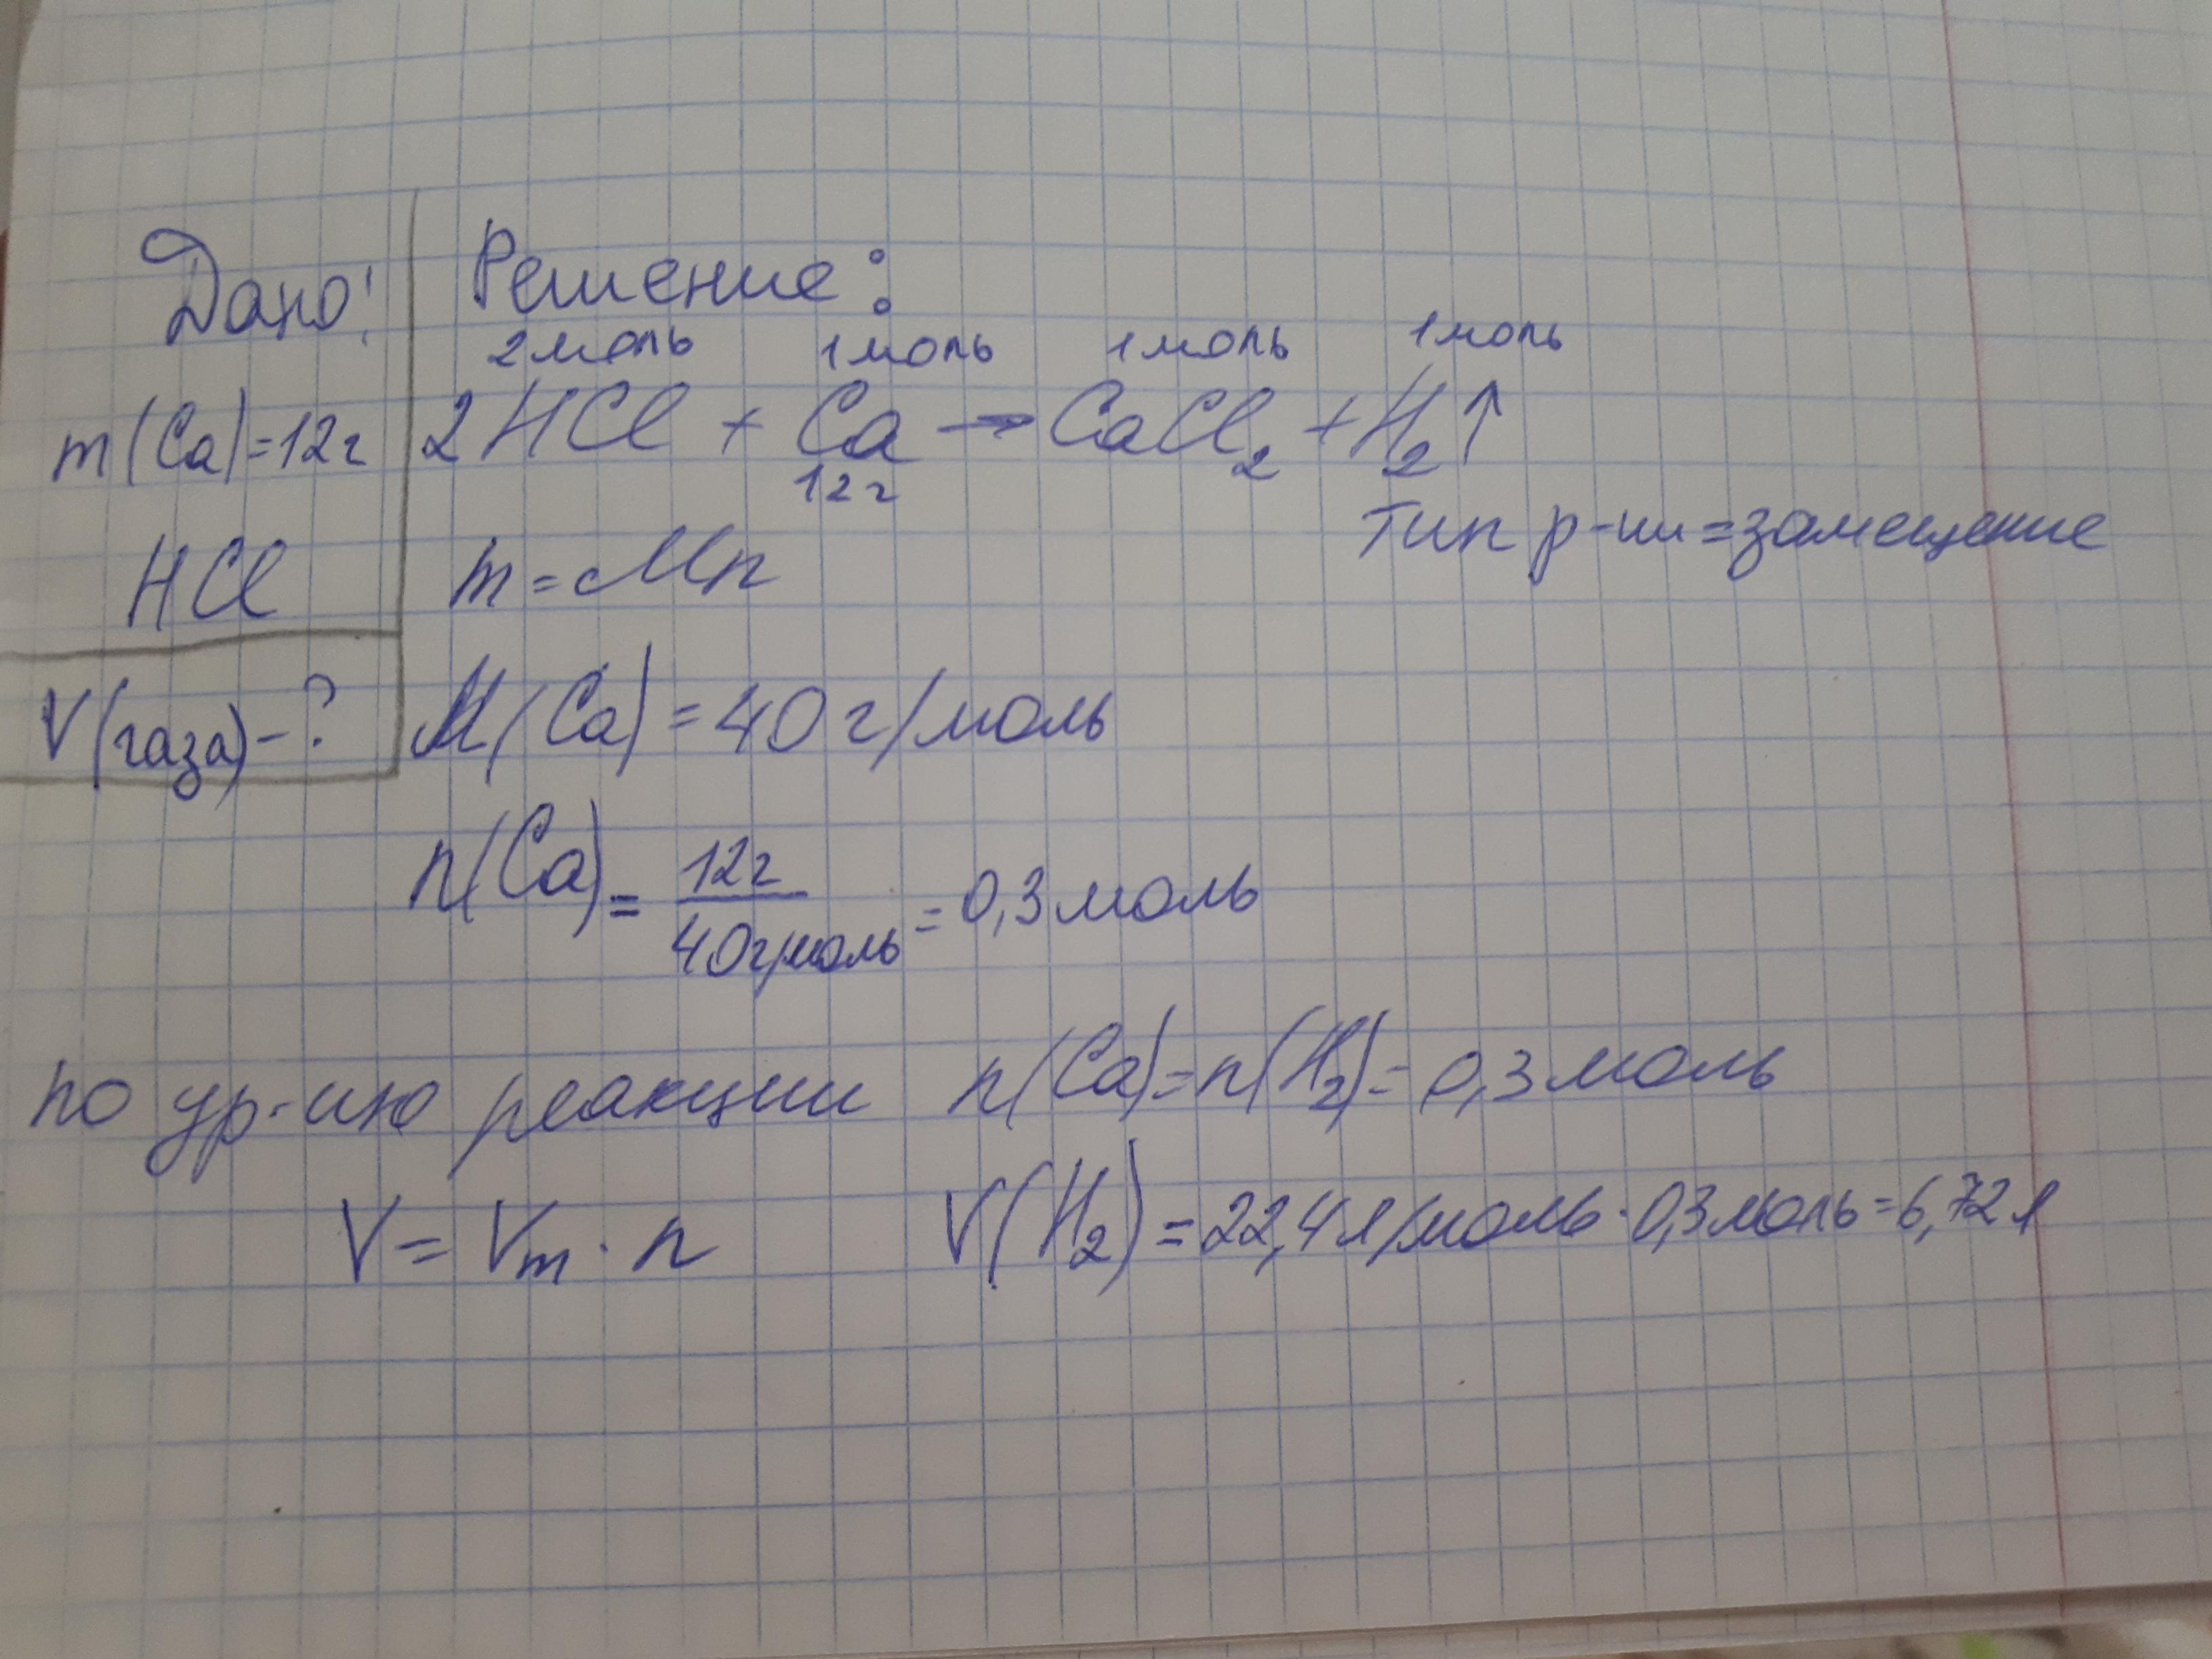 Дано:
m(Ca)=12г
HCl
V(газа)-?
Решение:
2моль 1моль 1моль 1моль
2HCl + Ca → CaCl₂ + H₂↑
12г
Тип р-ии = замещение
m = Mn
M(Ca) = 40 г/моль
n(Ca) = 12г / 40г/моль = 0,3 моль
по ур-ию реакции n(Ca)=n(H₂)= 0,3 моль
V = Vm · n V(H₂) = 22,4 л/моль · 0,3 моль = 6,72 л